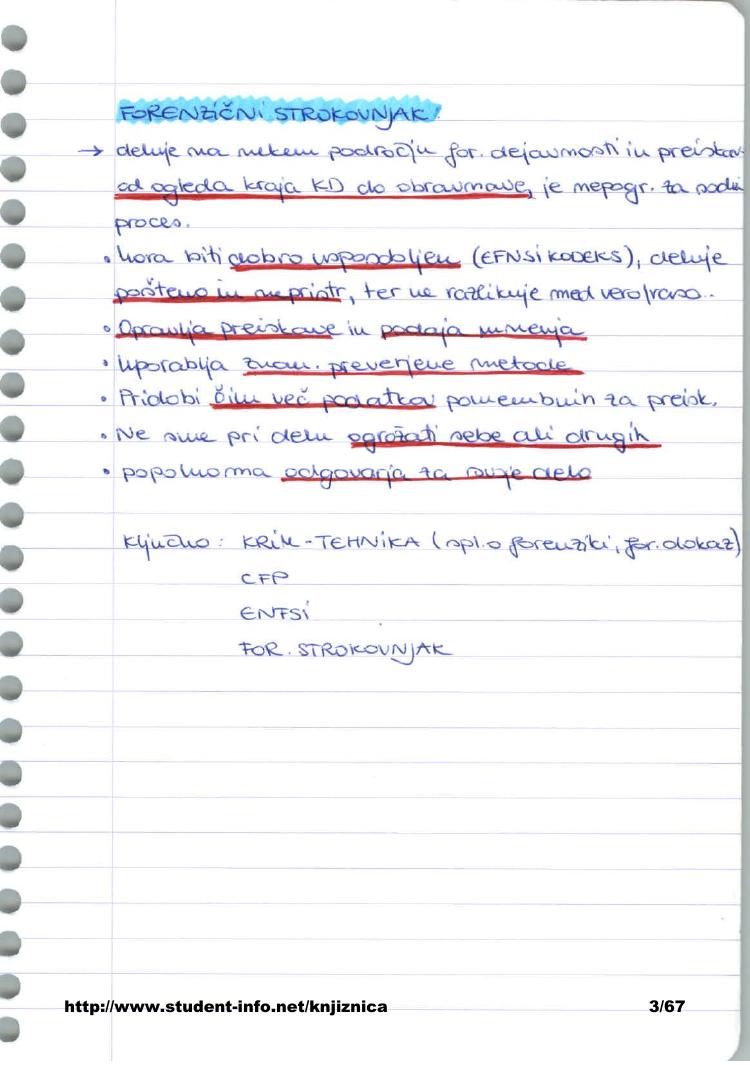 FORENZIČNI STROKOVNJAK!
→ deluje na nekem področju for. dejavnosti in preiskav
od ogleda kraja KD do obravnave, je nepogr. za sodni
proces.
• Mora biti dobro usposobljen (EFNSI KODEKS), deluje
pošteno in nepristr, ter ne razlikuje med vero/raso..
• Opravlja preiskave in podaja mnenja
• Uporablja znan. preverjene metode
• Pridobi čim več podatkov pomembnih za preisk.
• Ne sme pri delu ogrožati sebe ali drugih
• popolnoma odgovarja za svoje delo
Ključno: KRIM-TEHNIKA (spl. o forenziki, for. dokaz)
CFP
ENFSI
FOR. STROKOVNJAK
http://www.student-info.net/knjiznica 3/67